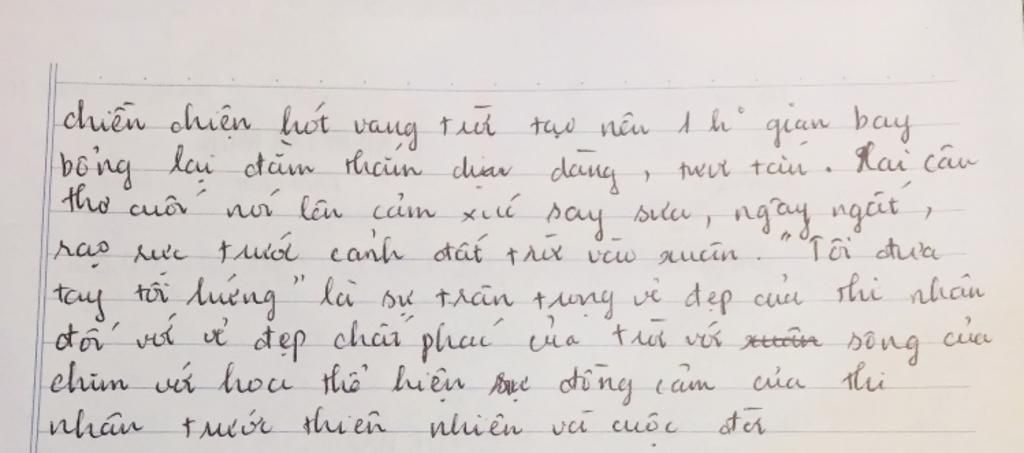 chiền chiện hót vang trời tạo nên 1 kº gian bay
bổng lại đằm thắm dịu dàng, tươi tắn. Hai câu
thơ cuối nói lên cảm xúc say sưa, ngây ngất,
rạo rực trước cảnh đất trời vào xuân. "Tôi đưa
tay tôi hứng" là sự trân trọng vẻ đẹp của thi nhân
đối với vẻ đẹp chất phác của trời với sông của
chim với hoa thể hiện sự đồng cảm của thi
nhân trước thiên nhiên và cuộc đời